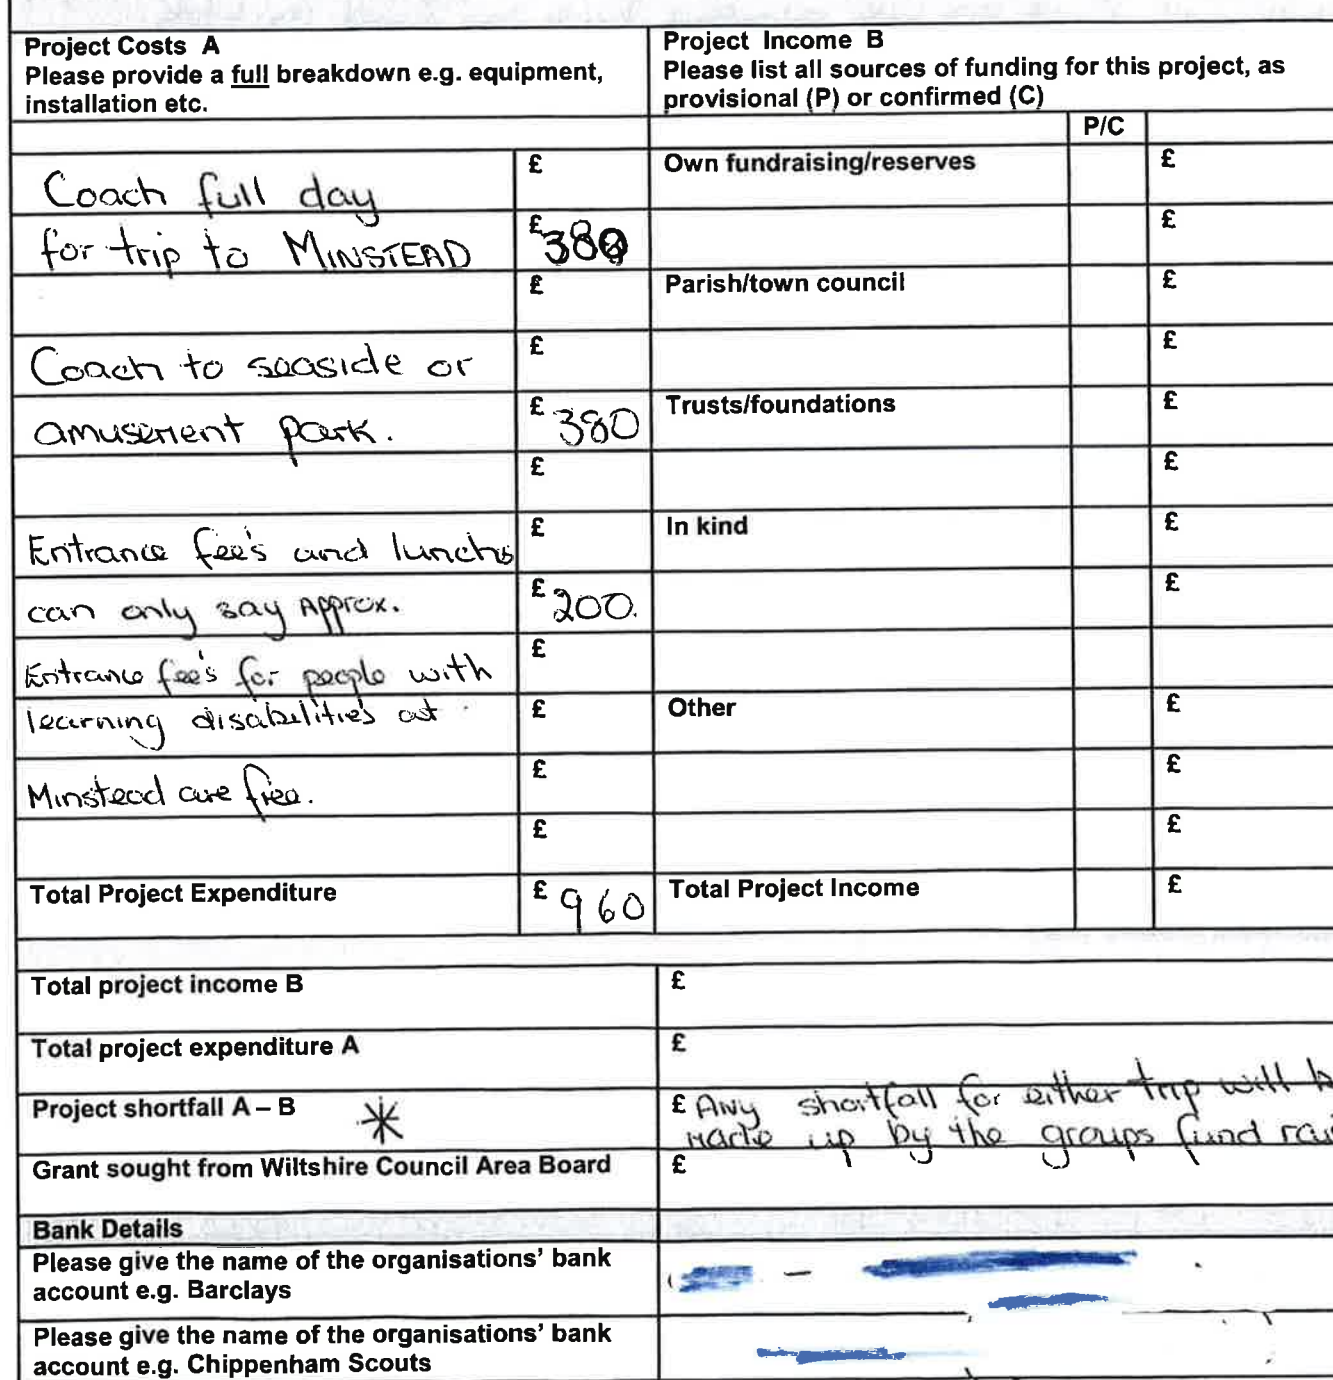 Project Costs A
Please provide a full breakdown e.g. equipment,
installation etc.
Project Income B
Please list all sources of funding for this project, as
provisional (P) or confirmed (C)
P/C
Coach full day
£
Own fundraising/reserves
£
for trip to MINSTEAD
£ 380
£
£
Parish/town council
£
Coach to seaside or
£
£
amusement park.
£ 380
Trusts/foundations
£
£
£
Entrance fee's and lunchs
£
In kind
£
can only say Approx.
£ 200.
£
Entrance fee's for people with
£
learning disabilities at
£
Other
£
Minstead are free.
£
£
£
£
Total Project Expenditure
£ 960
Total Project Income
£
Total project income B
£
Total project expenditure A
£
Project shortfall A – B *
£ Any shortfall for either trip will
made up by the groups fund
Grant sought from Wiltshire Council Area Board
£
Bank Details
Please give the name of the organisations' bank
account e.g. Barclays
Please give the name of the organisations' bank
account e.g. Chippenham Scouts